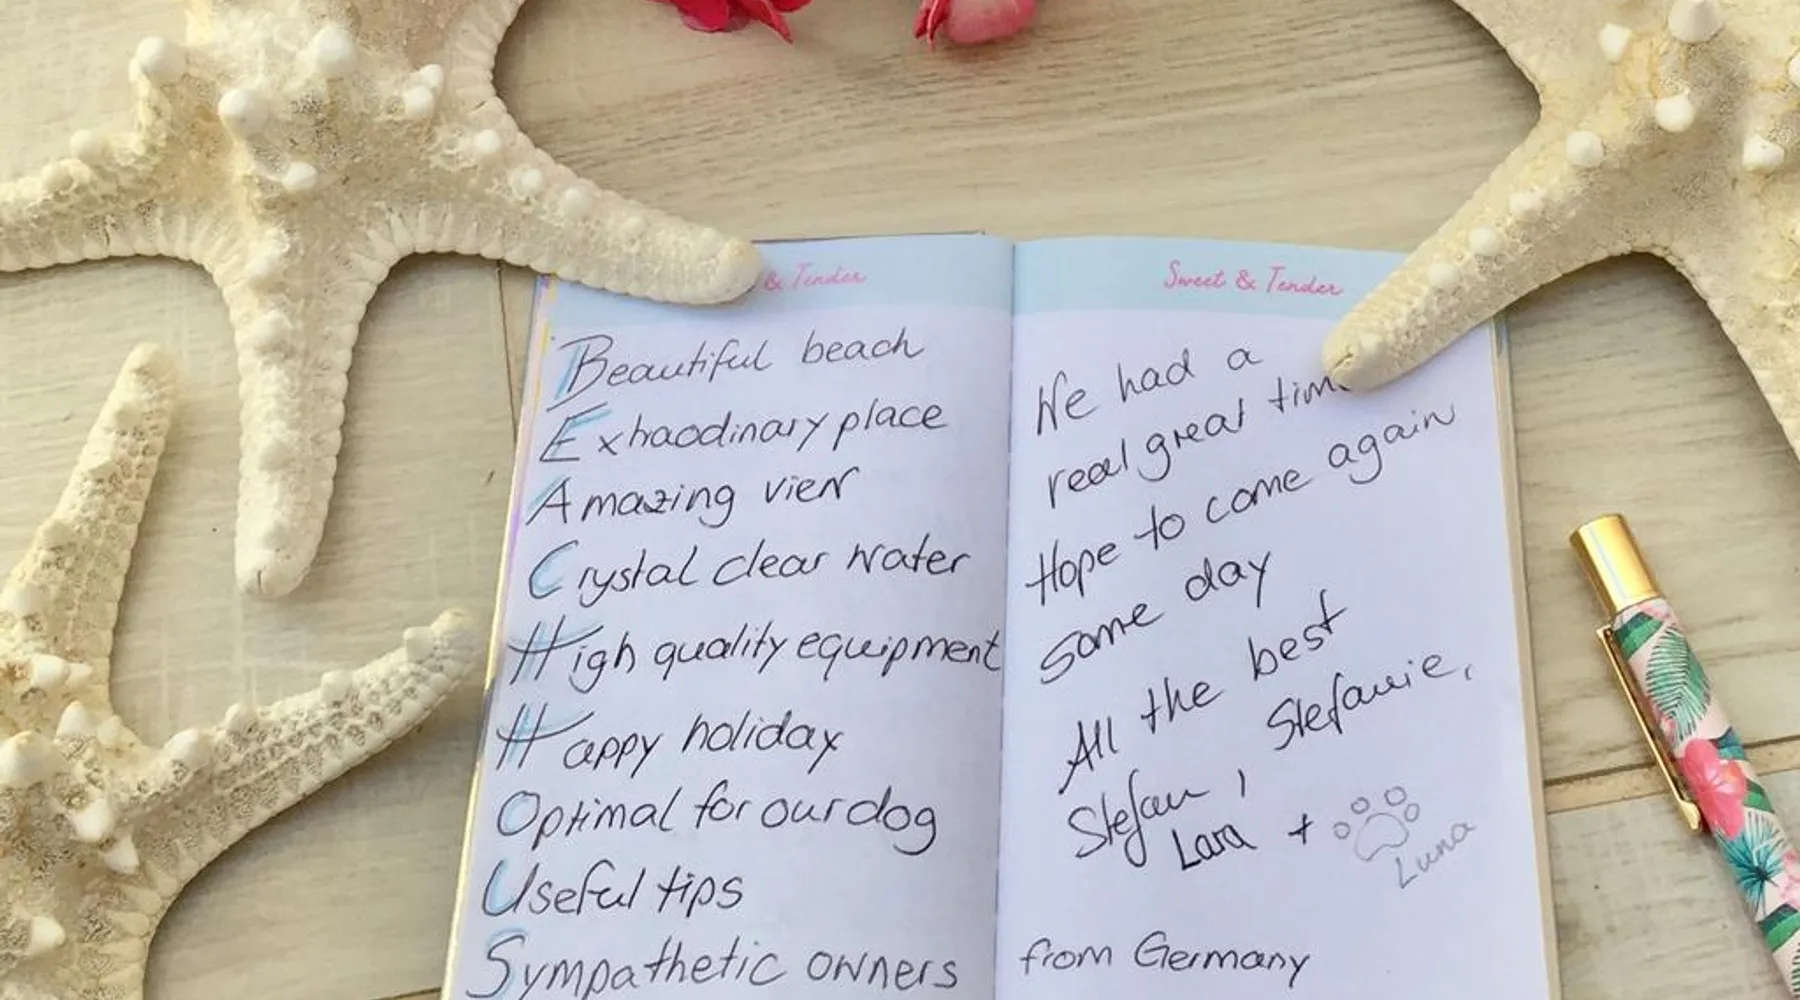 & Tender
Beautiful beach
Exhaodinary place
Amazing view
Crystal clear water
High quality equipment
Happy holiday
Optimal for our dog
Useful tips
Sympathetic owners
Sweet & Tender
We had a
real great time
Hope to come again
some day
All the best
Stefanie,
Stefan,
Lara +
Luna
from Germany